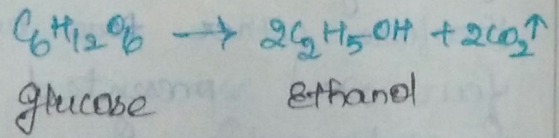 C₆H₁₂O₆ → 2C₂H₅OH + 2CO₂↑
glucose Ethanol